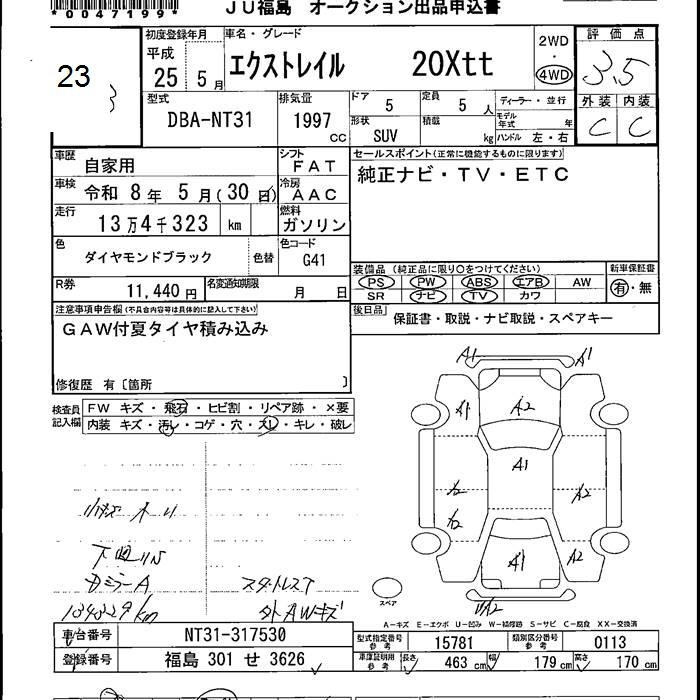 *0047199*
JU福島 オークション出品申込書
23
初度登録年月 平成 25 5月
車名・グレード エクストレイル 20Xtt
2WD・4WD
評価点 3.5
外装 内装
C C
型式 DBA-NT31
排気量 1997 CC
ドア 5
定員 5人
形状 SUV
積載 kg
ディーラー・並行
モデル年式 年
ハンドル 左・右
車歴 自家用
シフト FAT
セールスポイント(正常に機能するものに限ります)
純正ナビ・TV・ETC
車検 令和 8年 5月(30日)
冷房 AAC
走行 13万4千323 km
燃料 ガソリン
色 ダイヤモンドブラック 色替
色コード G41
装備品(純正品に限り○をつけてください)
PS PW ABS エアB AW
SR ナビ TV カワ
新車保証書 有・無
R券 11,440円
名変通知期限 月 日
後日品 保証書・取説・ナビ取説・スペアキー
注意事項申告欄(不具合内容等は具体的に記入して下さい)
GAW付夏タイヤ積み込み
修復歴 有〔箇所 〕
検査員記入欄
FW キズ・飛石・ヒビ割・リペア跡・×要
内装 キズ・汚レ・コゲ・穴・スレ・コキレ・破レ
A1 A1
A1 A2
A1
A2
A2
A1 A2
下廻りS
DミラーA
スタットレスT
134329km
外AWキズ
スペア
A-キズ E-エクボ U-凹み W-補修跡 S-サビ C-腐食 XX-交換済
車台番号 NT31-317530
型式指定番号 参考 15781
類別区分番号 参考 0113
登録番号 福島 301 せ 3626
車庫証明用 参考 長さ 463 cm 幅 179 cm 高さ 170 cm